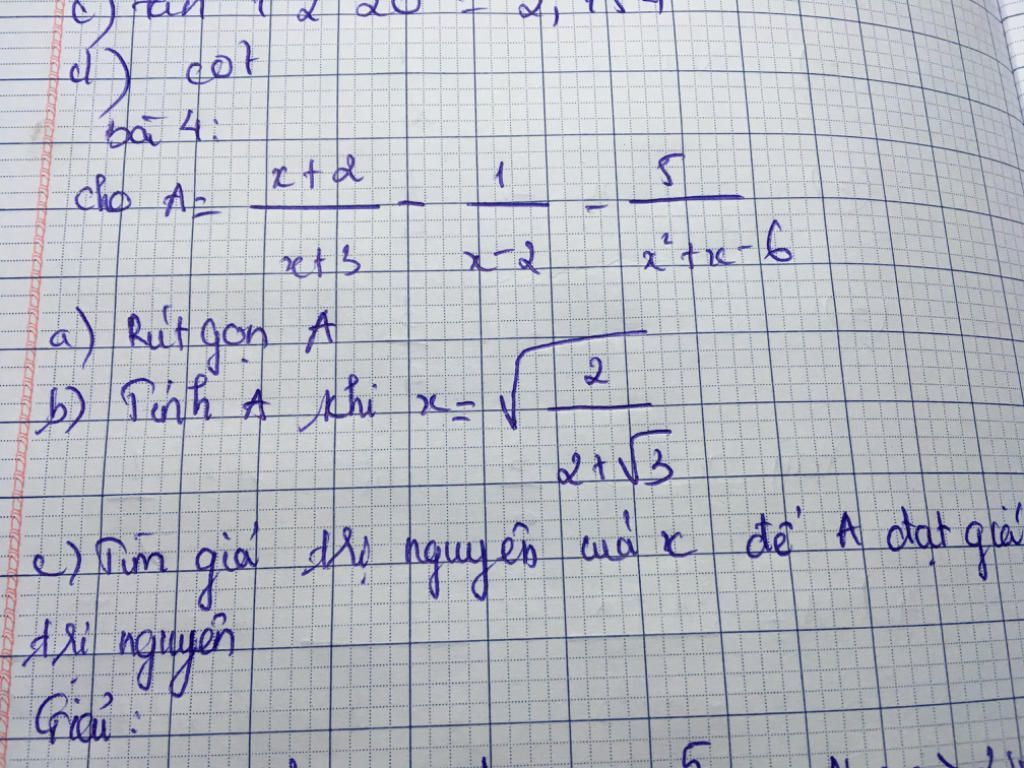 c) tan
d) cot
bà 4:
cho A = \frac{x+2}{x+3} - \frac{1}{x-2} - \frac{5}{x^2+x-6}
a) Rút gọn A
b) Tính A khi x = \sqrt{\frac{2}{2+\sqrt{3}}}
c) Tìm giá trị nguyên cuả x để A đạt giá
trị nguyên
Giải:
5